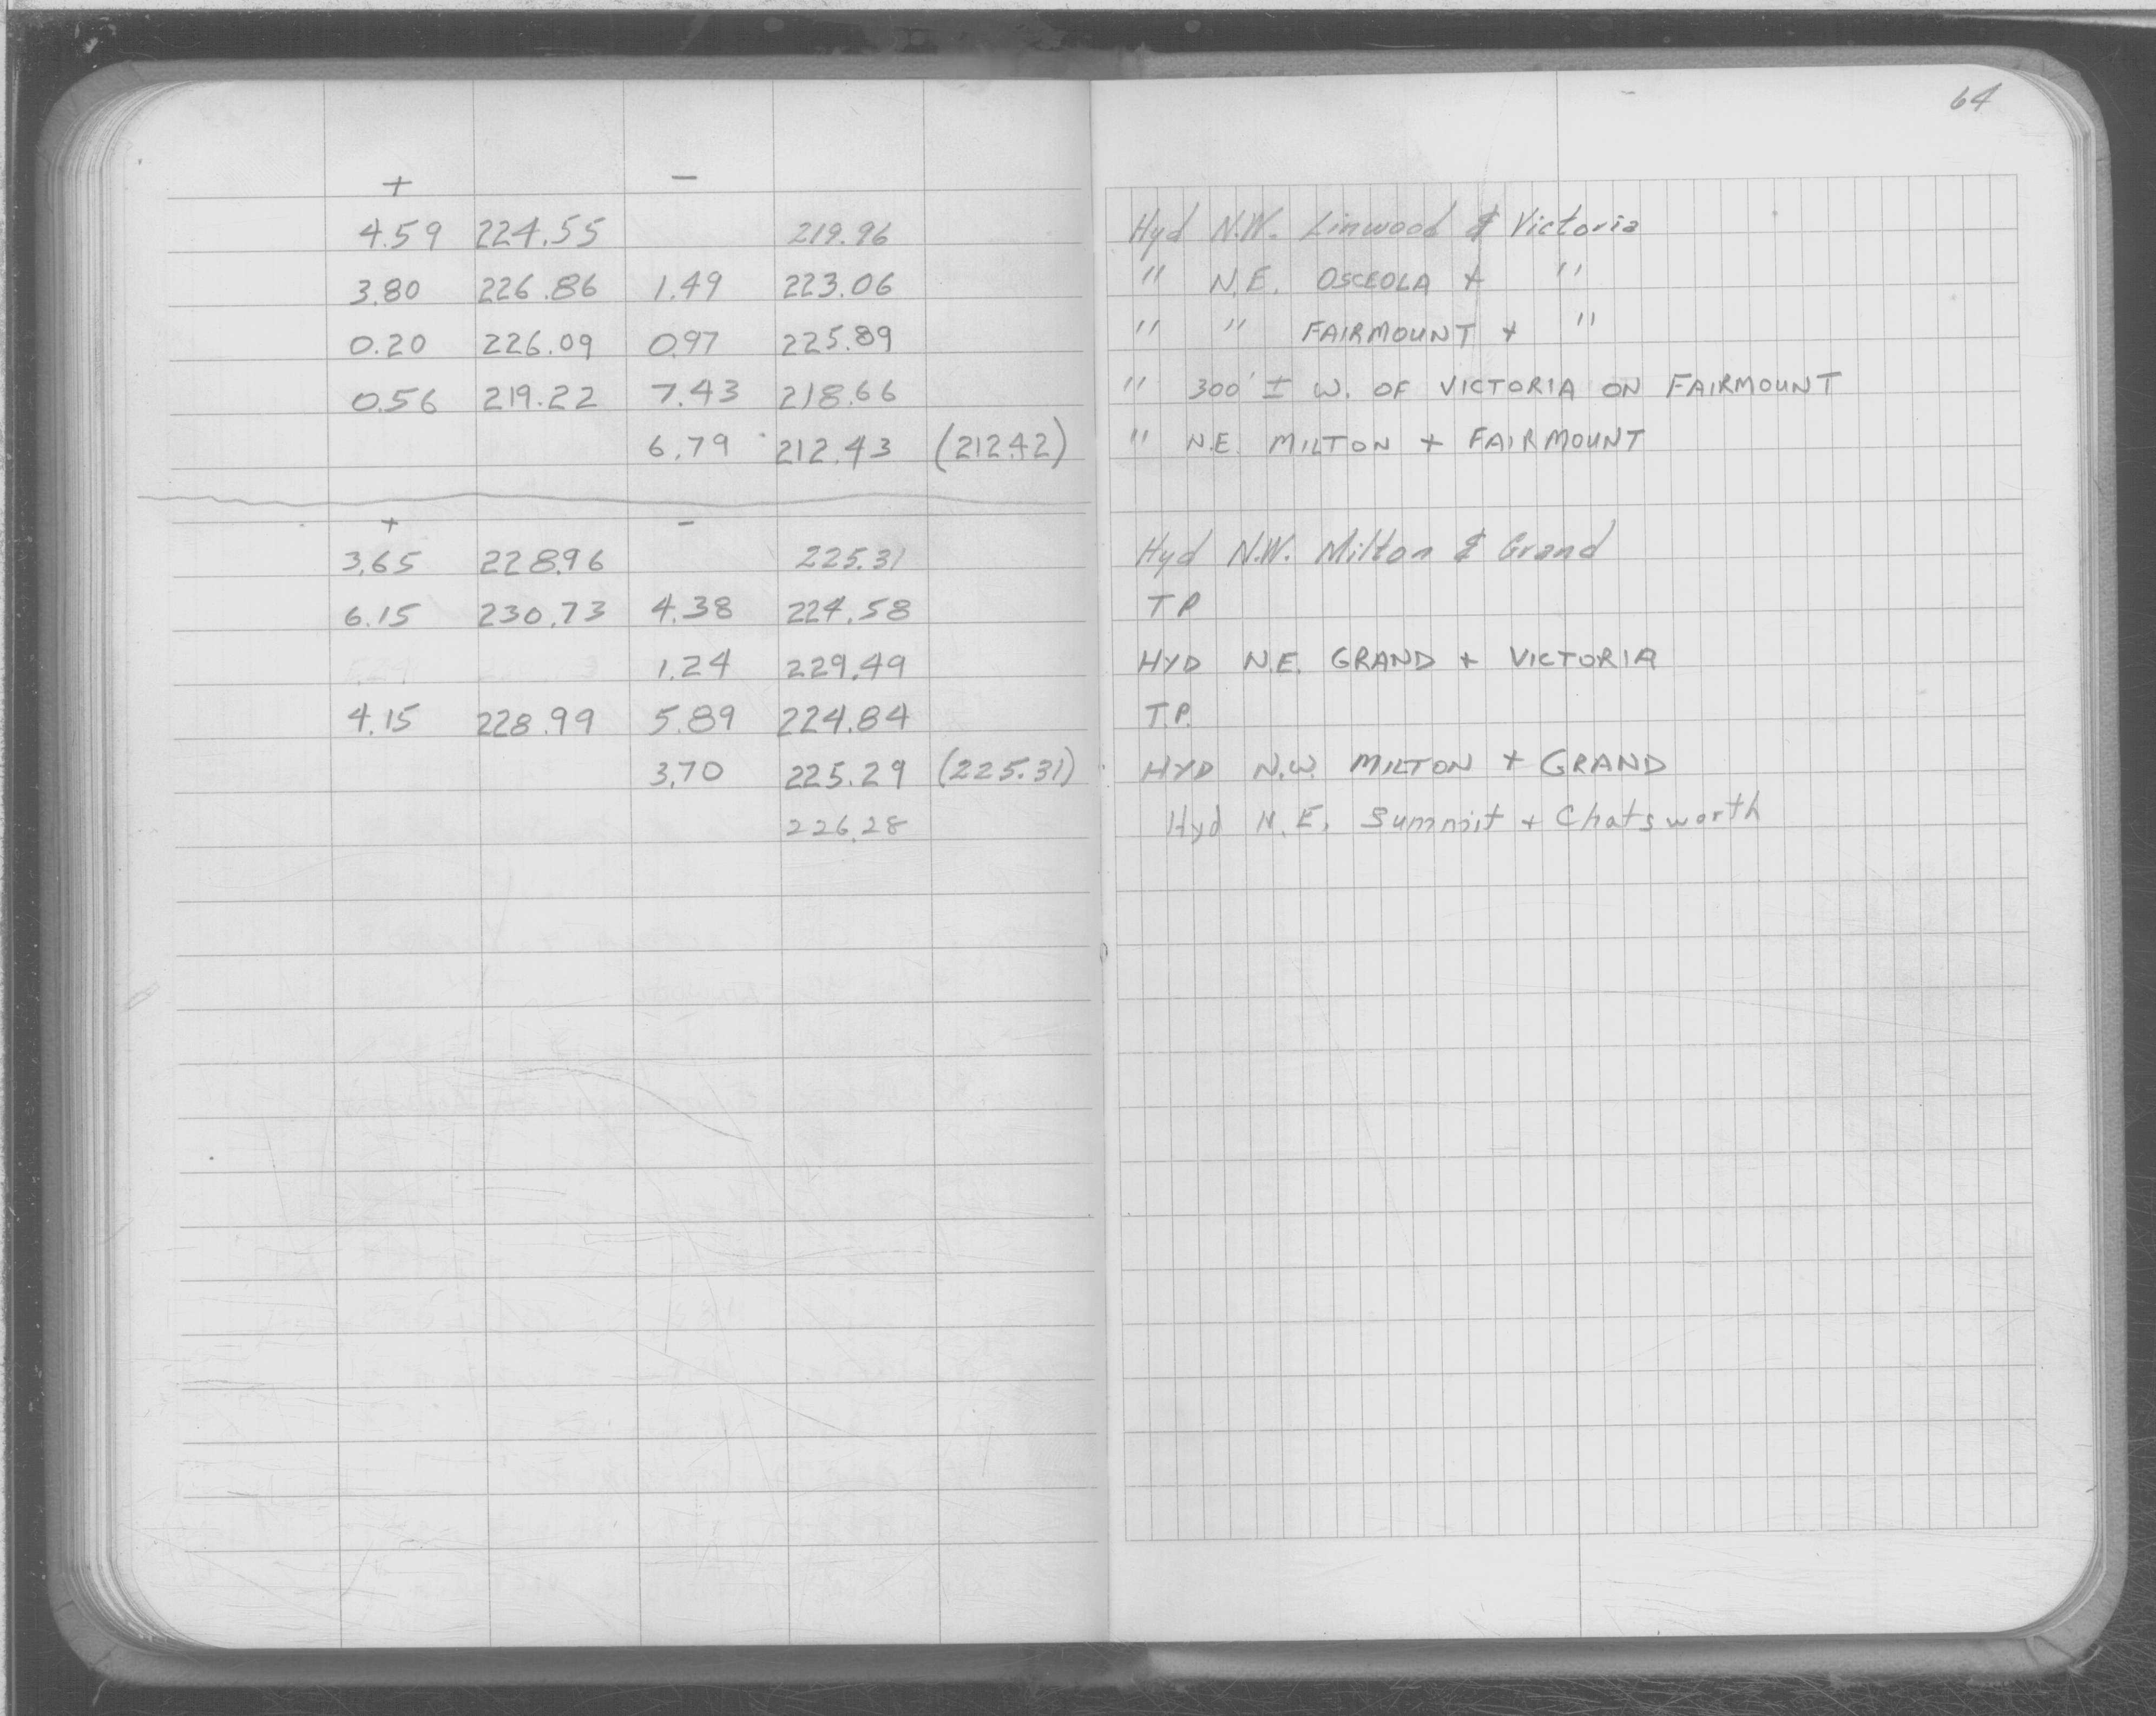 64
+ −
4.59 224.55 219.96 Hyd N.W. Linwood & Victoria
3.80 226.86 1.49 223.06 " N.E. OSCEOLA + "
0.20 226.09 0.97 225.89 " " FAIRMOUNT + "
0.56 219.22 7.43 218.66 " 300' ± W. OF VICTORIA ON FAIRMOUNT
6.79 212.43 (212.42) " N.E. MILTON + FAIRMOUNT
+ −
3.65 228.96 225.31 Hyd N.W. Milton & Grand
6.15 230.73 4.38 224.58 T.P.
1.24 229.49 HYD N.E. GRAND + VICTORIA
4.15 228.99 5.89 224.84 T.P.
3.70 225.29 (225.31) HYD N.W. MILTON + GRAND
226.28 Hyd N.E. Summit + Chatsworth